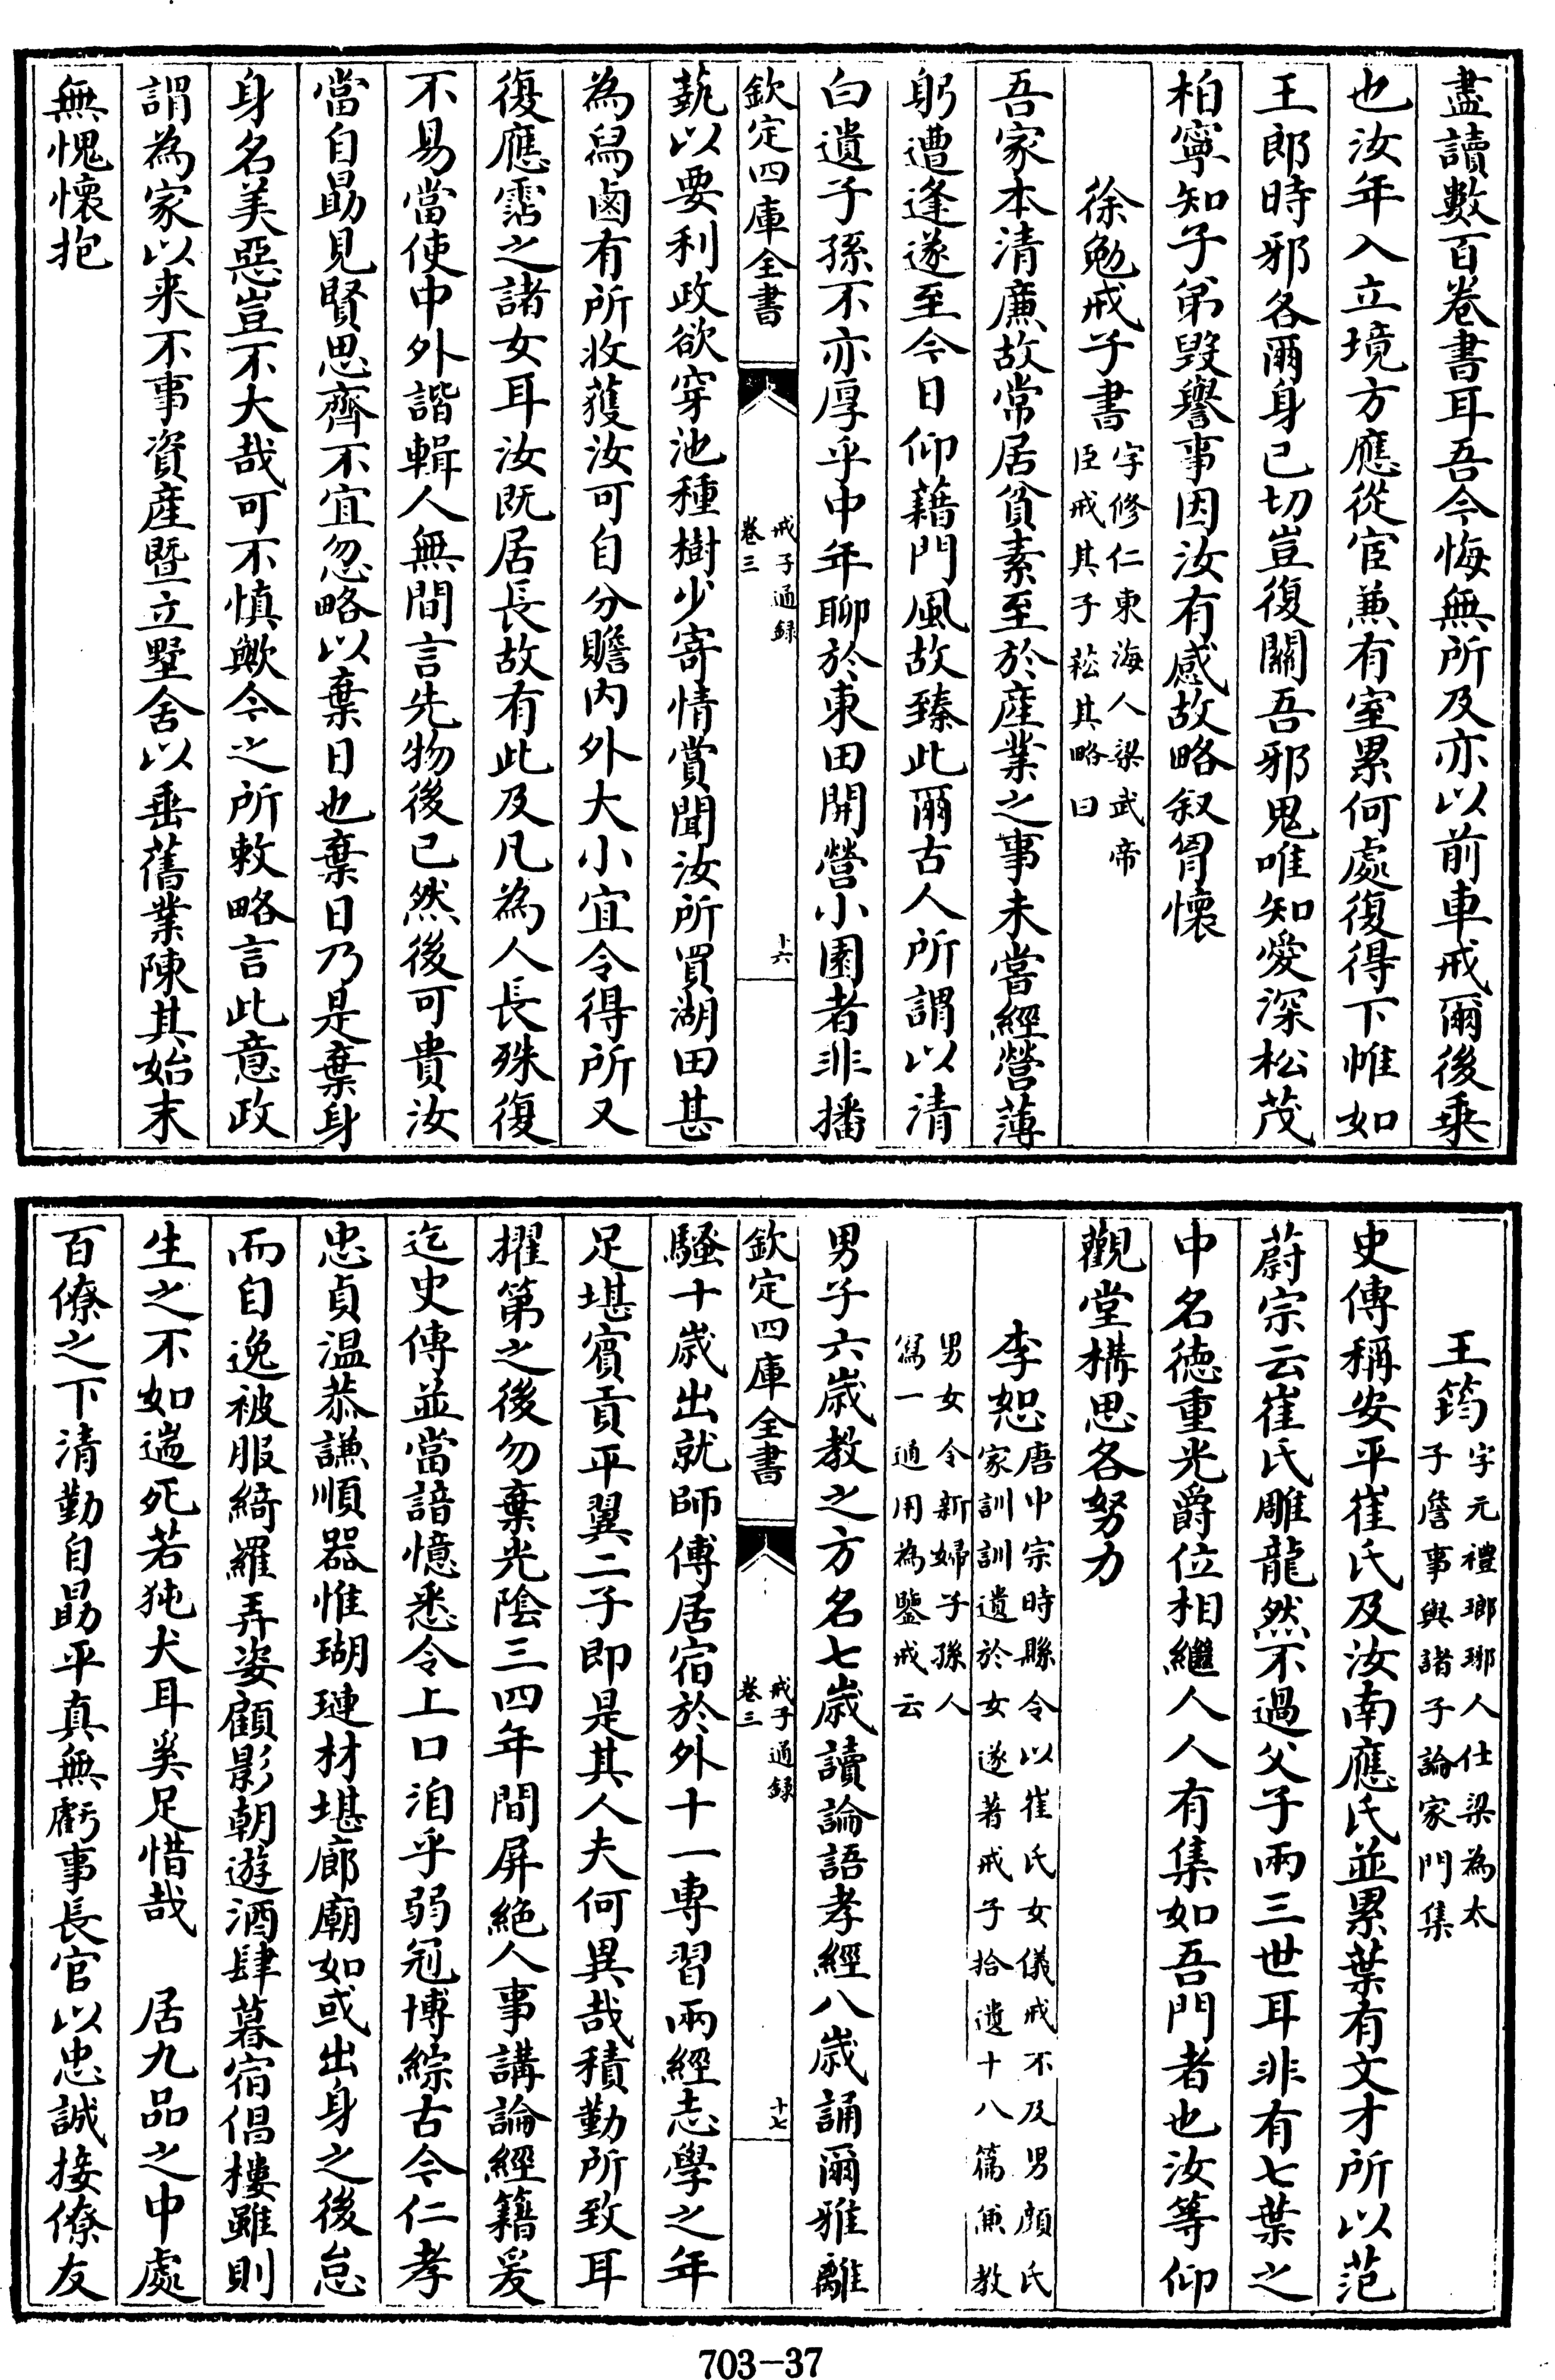 盡讀數百卷書耳吾今悔無所及亦以前車戒爾後乗
也汝年入立境方應從宦兼有室累何處復得下帷如
王郎時邪各爾身已切豈復關吾邪鬼唯知愛深松茂
柏寧知子弟毀譽事因汝有感故略叙胷懷
徐勉戒子書字修仁東海人梁武帝
臣戒其子崧其略曰
吾家本清廉故常居貧素至於産業之事未嘗經營薄
躬遭逢遂至今日仰藉門風故臻此爾古人所謂以清
白遺子孫不亦厚乎中年聊於東田開營小園者非播
欽定四庫全書
戒子通録
卷三
十六
蓺以要利政欲穿池種樹少寄情賞聞汝所買湖田甚
為舄鹵有所收穫汝可自分贍内外大小宜令得所又
復應霑之諸女耳汝既居長故有此及凡為人長殊復
不易當使中外諧輯人無間言先物後已然後可貴汝
當自勗見賢思齊不宜忽略以棄日也棄日乃是棄身
身名美惡豈不大哉可不慎歟今之所敕略言此意政
謂為家以来不事資産暨立墅舍以垂舊業陳其始末
無愧懷抱
王筠字元禮瑯琊人仕梁為太
子詹事與諸子論家門集
史傳稱安平崔氏及汝南應氏並累葉有文才所以范
蔚宗云崔氏雕龍然不過父子兩三世耳非有七葉之
中名徳重光爵位相繼人人有集如吾門者也汝等仰
觀堂構思各努力
李恕唐中宗時縣令以崔氏女儀戒不及男顔氏
家訓訓遺於女遂著戒子拾遺十八篇兼教
男女令新婦子孫人
寫一通用為鑒戒云
男子六歳教之方名七歳讀論語孝經八歳誦爾雅離
欽定四庫全書
戒子通録
卷三
十七
騷十歳出就師傅居宿於外十一専習兩經志學之年
足堪賓貢平翼二子即是其人夫何異哉積勤所致耳
擢第之後勿棄光陰三四年間屏絶人事講論經籍爰
迄史傳並當諳憶悉令上口洎乎弱冠博綜古今仁孝
忠貞温恭謙順器惟瑚璉材堪廊廟如或出身之後怠
而自逸被服綺羅弄姿顧影朝遊酒肆暮宿倡樓雖則
生之不如遄死若㹠犬耳奚足惜哉　居九品之中處
百僚之下清勤自勗平真無虧事長官以忠誠接僚友
703-37